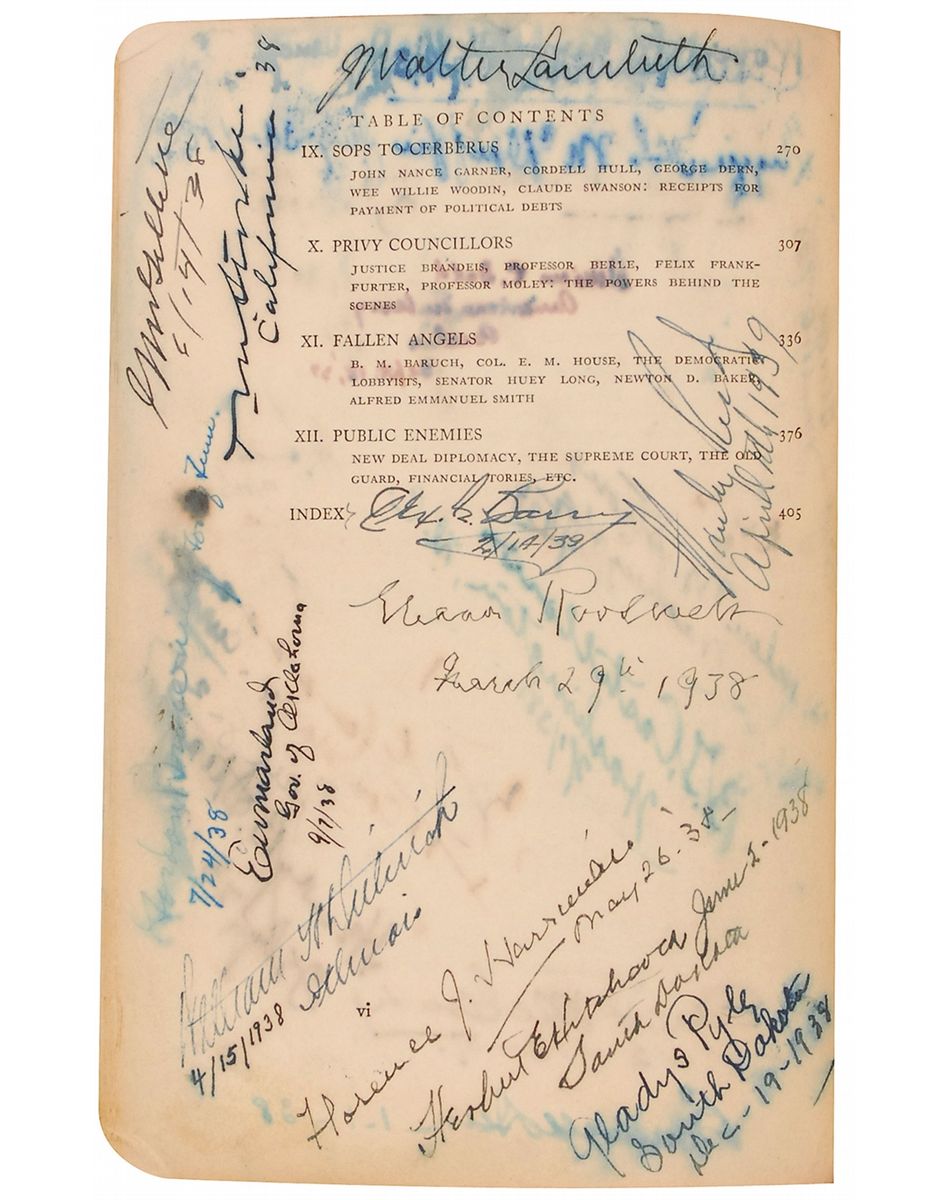 Walter Lambeth
TABLE OF CONTENTS
IX. SOPS TO CERBERUS 270
JOHN NANCE GARNER, CORDELL HULL, GEORGE DERN,
WEE WILLIE WOODIN, CLAUDE SWANSON: RECEIPTS FOR
PAYMENT OF POLITICAL DEBTS
X. PRIVY COUNCILLORS 307
JUSTICE BRANDEIS, PROFESSOR BERLE, FELIX FRANK-
FURTER, PROFESSOR MOLEY: THE POWERS BEHIND THE
SCENES
XI. FALLEN ANGELS 336
B. M. BARUCH, COL. E. M. HOUSE, THE DEMOCRATIC
LOBBYISTS, SENATOR HUEY LONG, NEWTON D. BAKER,
ALFRED EMMANUEL SMITH
XII. PUBLIC ENEMIES 376
NEW DEAL DIPLOMACY, THE SUPREME COURT, THE OLD
GUARD, FINANCIAL TORIES, ETC.
INDEX 405
2/14/39
Eleanor Roosevelt
March 29th 1938
California 38
April 1939
Tenn.
7/24/38
EWMarland
Gov. of Oklahoma
9/7/38
William H Dieterich
Illinois
4/15/1938
Florence J. Harriman
May 26-38-
Herbert E Hitchcock June 2-1938
South Dakota
Gladys Pyle
South Dakota
Dec-19-1938
vi